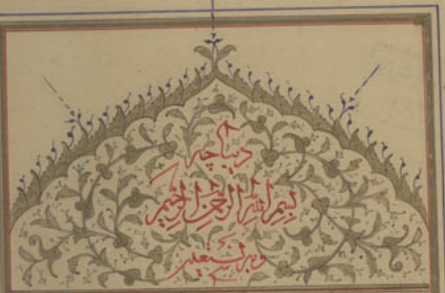 دیباچه
بسم الله الرحمن الرحیم
وبه نستعین